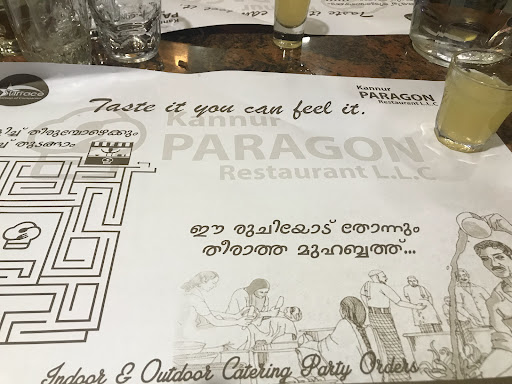 Taste it you can feel it.
Kannur
PARAGON
Restaurant L.L.C
Kannur
PARAGON
Restaurant L.L.C
ഈ രുചിയോട് തോന്നും
തീരാത്ത മുഹബ്ബത്ത്...
Indoor & Outdoor Catering Party Orders